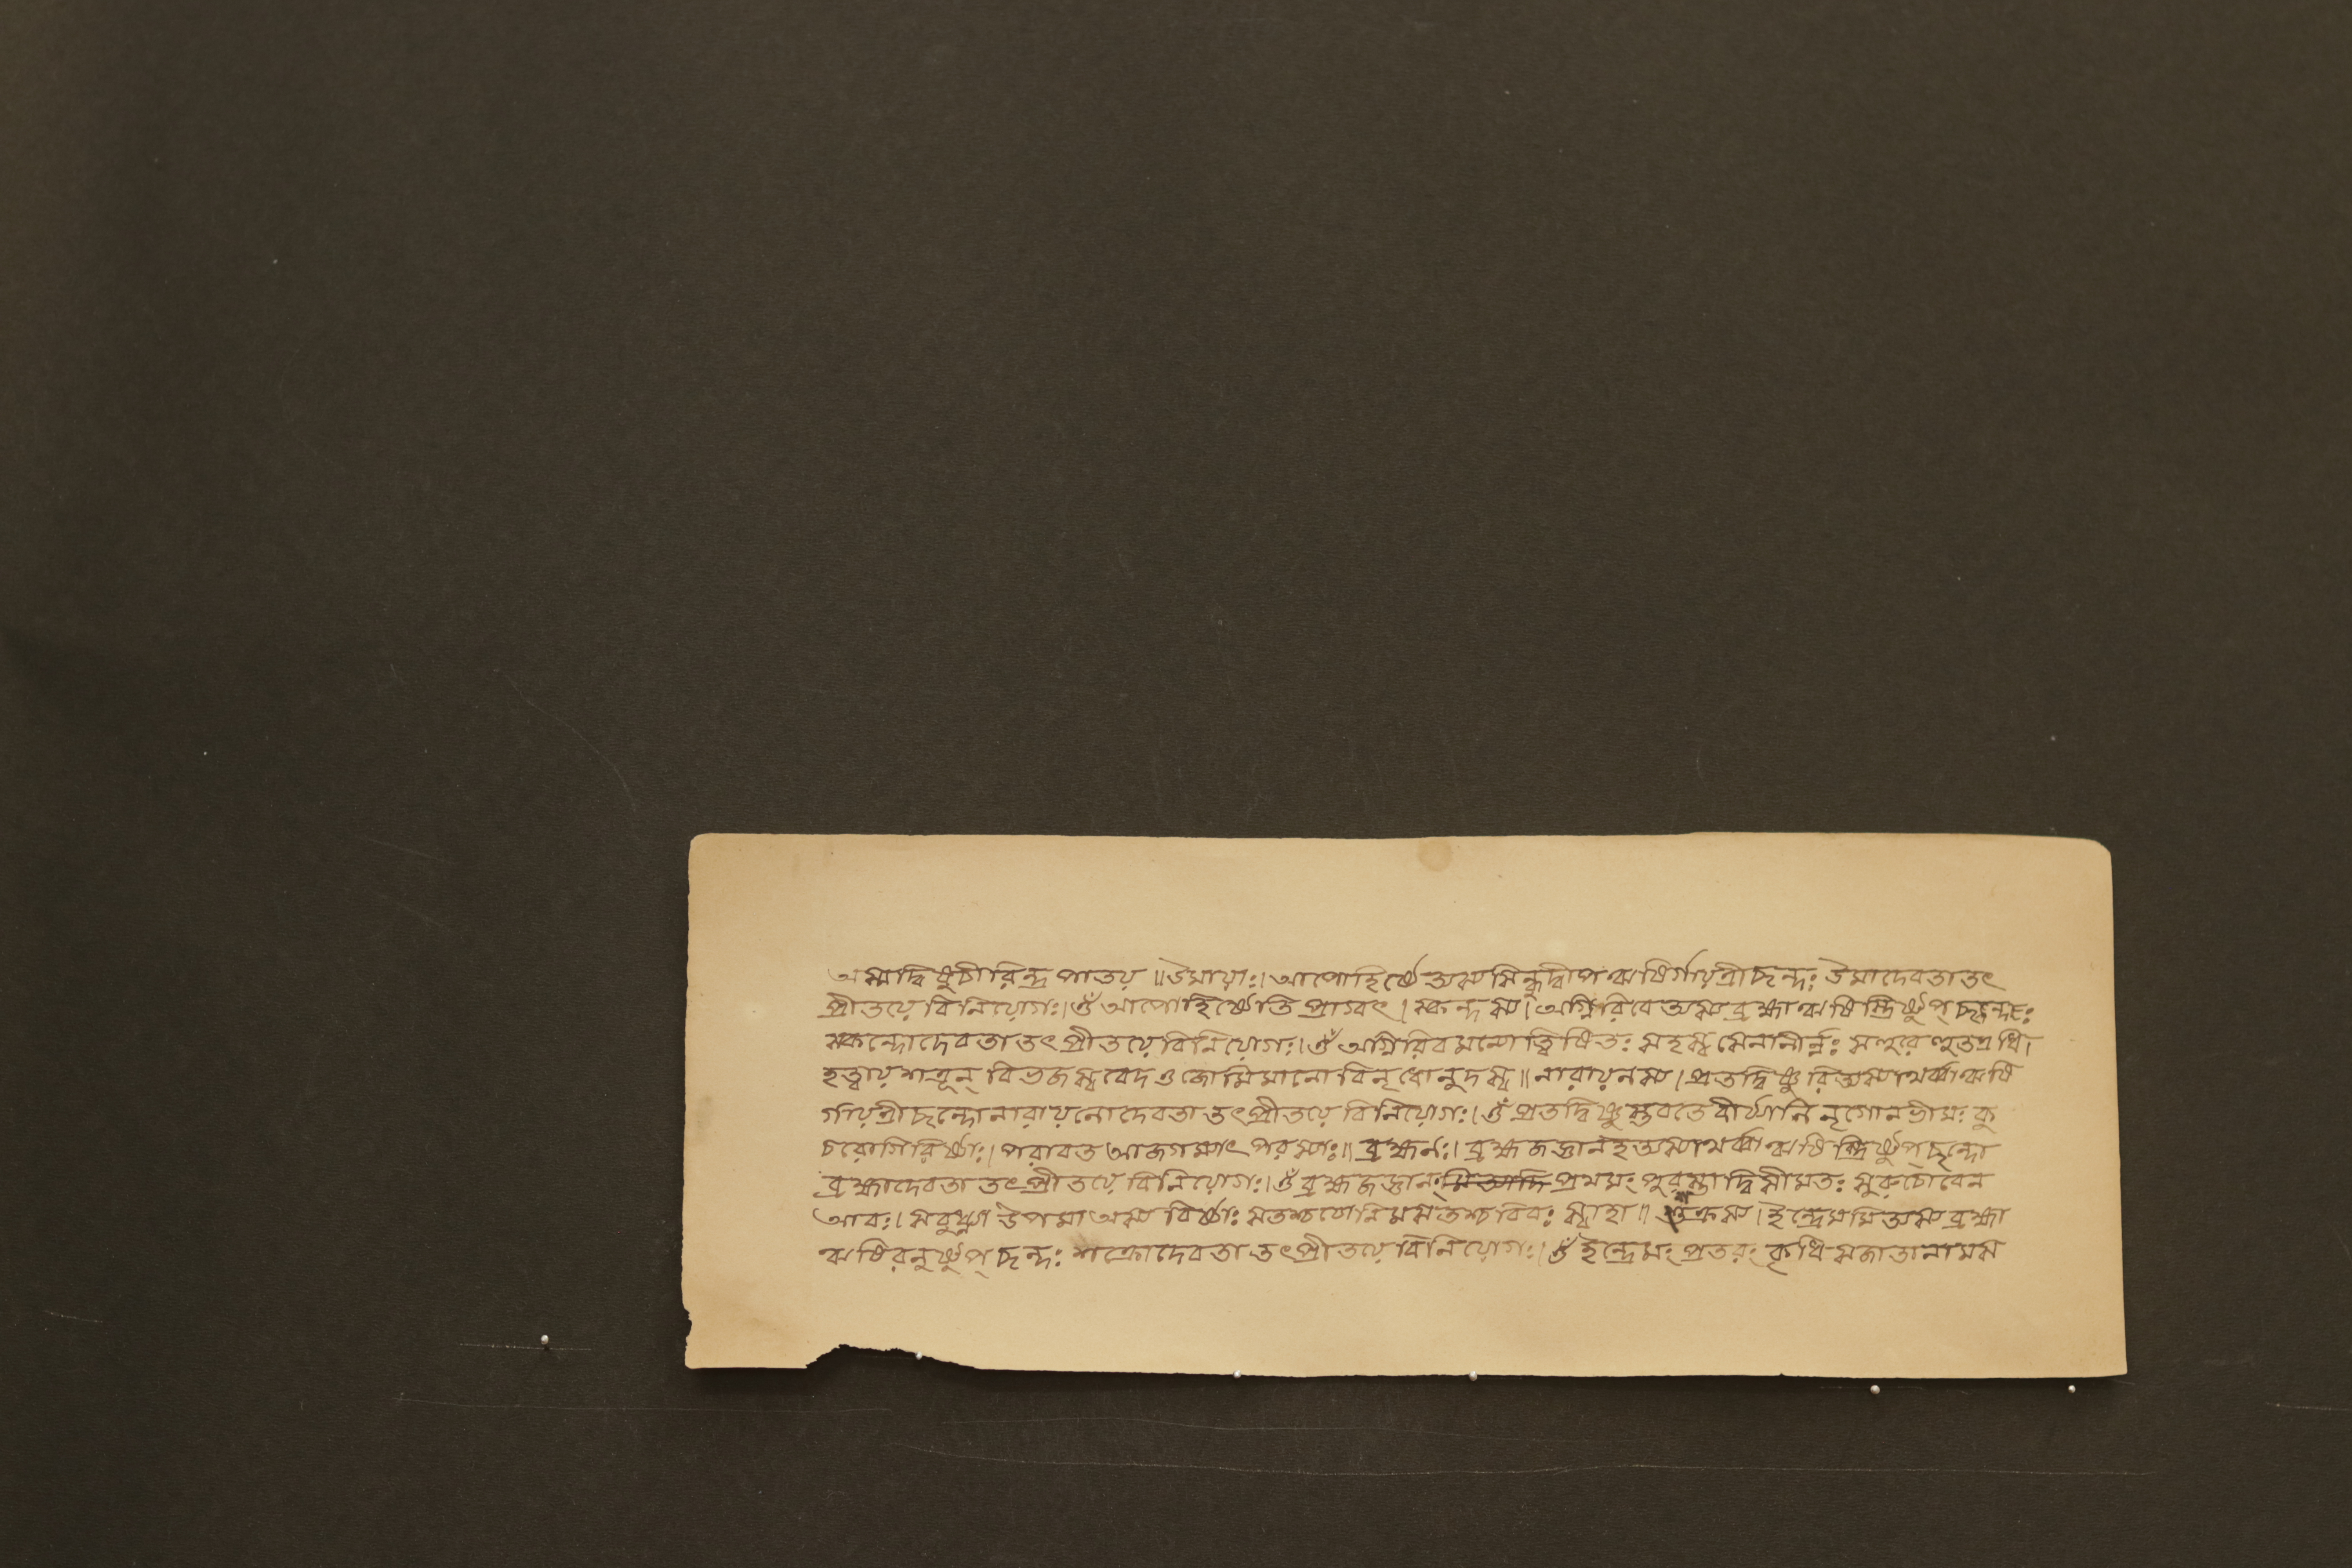 অস্মাদ্বিষ্ণুচীরিন্দ্র পাতয় ॥ উমায়াঃ। আপোহিষ্ঠে অস্য সিন্ধুদ্বীপ ঋষির্গায়ত্রীছন্দঃ উমাদেবতা তৎ
প্রীতয়ে বিনিয়োগঃ। ওঁ আপোহিষ্ঠেতি প্রাগ্বৎ। স্কন্দস্য। অগ্নিরিবে অস্য ব্রহ্মাঋষিস্ত্রিষ্টুপ্ ছন্দঃ
স্কন্দোদেবতা তৎ প্রীতয়ে বিনিয়োগঃ। ওঁ অগ্নিরিবমন্যোত্বিষিতঃ সহস্ব সেনানীর্ন্নঃ সহুরে হুতএধি।
হত্বায় শত্রূন্ বিভজস্ব বেদ ওজোমিমানো বিমৃধোনুদস্ব॥ নারায়নস্য। প্রতদ্বিষ্ণুরিঅস্যাথর্ব্বাঋষি
র্গায়ত্রীছন্দোনারায়নোদেবতা তৎপ্রীতয়ে বিনিয়োগঃ। ওঁ প্রতদ্বিষ্ণুস্তবতে বীর্য্যানি মৃগোনভীমঃ কু
চরোগিরিষ্ঠাঃ। পরাবত আজগম্যাৎ পরস্যাঃ॥ ব্রহ্মনঃ। ব্রহ্মজজ্ঞানংঅস্যাথর্ব্বাঋষিস্ত্রিষ্টুপ্ছন্দো
ব্রহ্মাদেবতা তৎপ্রীতয়ে বিনিয়োগঃ। ওঁ ব্রহ্মজজ্ঞানং প্রথমং পুরস্তাদ্বিসীমতঃ সুরুচোবেন
আবঃ। সবুধ্ন্যা উপমা অস্য বিষ্ঠাঃ সতশ্চযোনিমসতশ্চবিবঃ স্বাহা॥ শক্রস্য। ইন্দ্রেমমিঅস্য ব্রহ্মা
ঋষিরনুষ্টুপ্ছন্দঃ শক্রোদেবতা তৎপ্রীতয়ে বিনিয়োগঃ। ওঁ ইন্দ্রেমং প্রতরং কৃধি সজাতানামস